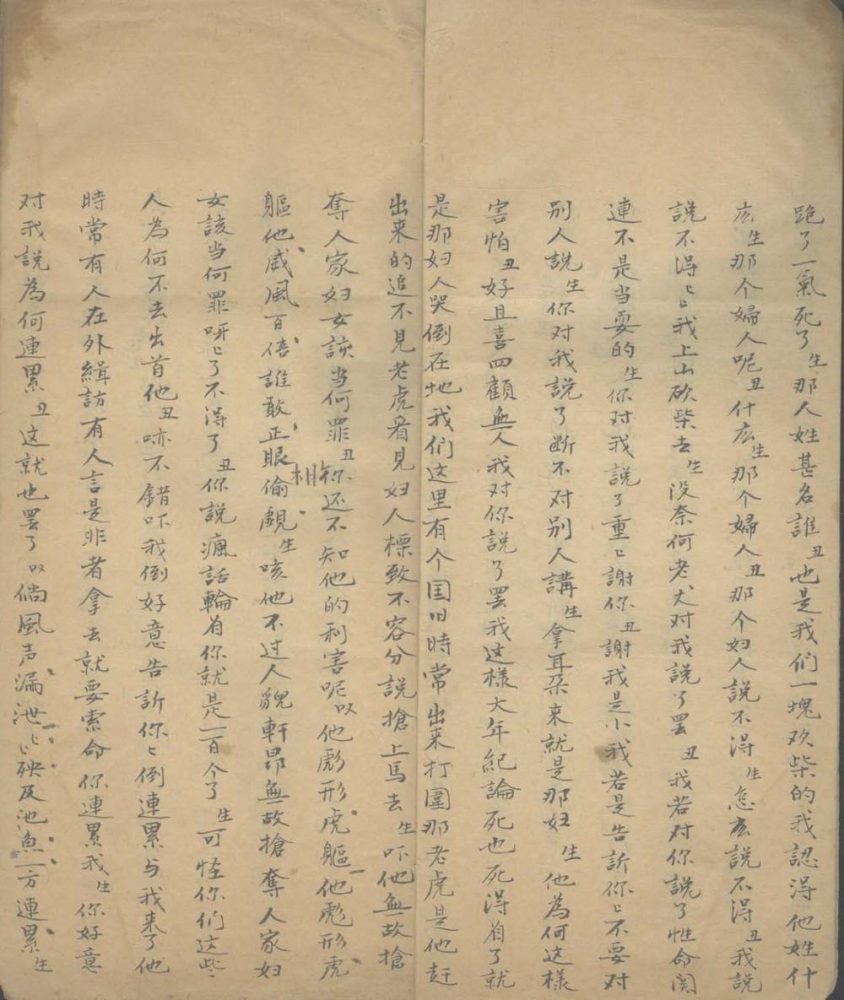 跑了一氣死了生那人姓甚名誰丑也是我们一塊砍柴的我認淂他姓什
庅生那个婦人呢丑什庅生那个婦人丑那个妇人説不淂生怎庅説不淂丑我説
説不淂〻我上山砍柴去生没奈何老丈对我説了罢丑我若对你説了性命関
連不是当耍的生你对我説了重〻謝你丑謝我是小我若是告訴你〻不要对
别人説生你对我説了断不对别人講生拿耳朶来就是那妇生他為何这樣
害怕丑好且喜四顧無人我对你説了罢我这樣大年紀論死也死淂着了就
是那妇人哭倒在地我们这里有个国旧時常出来打圍那老虎是他赶
出来的追不見老虎看見妇人標致不容分説搶上馬去生吓他無故搶
奪人家妇女該当何罪丑你还不知他的利害呢以他彪形虎軀他彪形虎
軀他威風百倍誰敢正眼偷覷生咳他不过人貌軒昂無故搶奪人家妇
女該当何罪呀〻了不淂了丑你説瘋話輪着你就是一百个了生可怪你们这些
人為何不去出首他丑㖡不錯吓我倒好意告訴你〻倒連累与我来了他
時常有人在外緝訪有人言是非者拿去就要索命你連累我生你好意
对我説為何連累丑这就也罢了以倘風声漏泄〻殃及池魚一方連累生
相